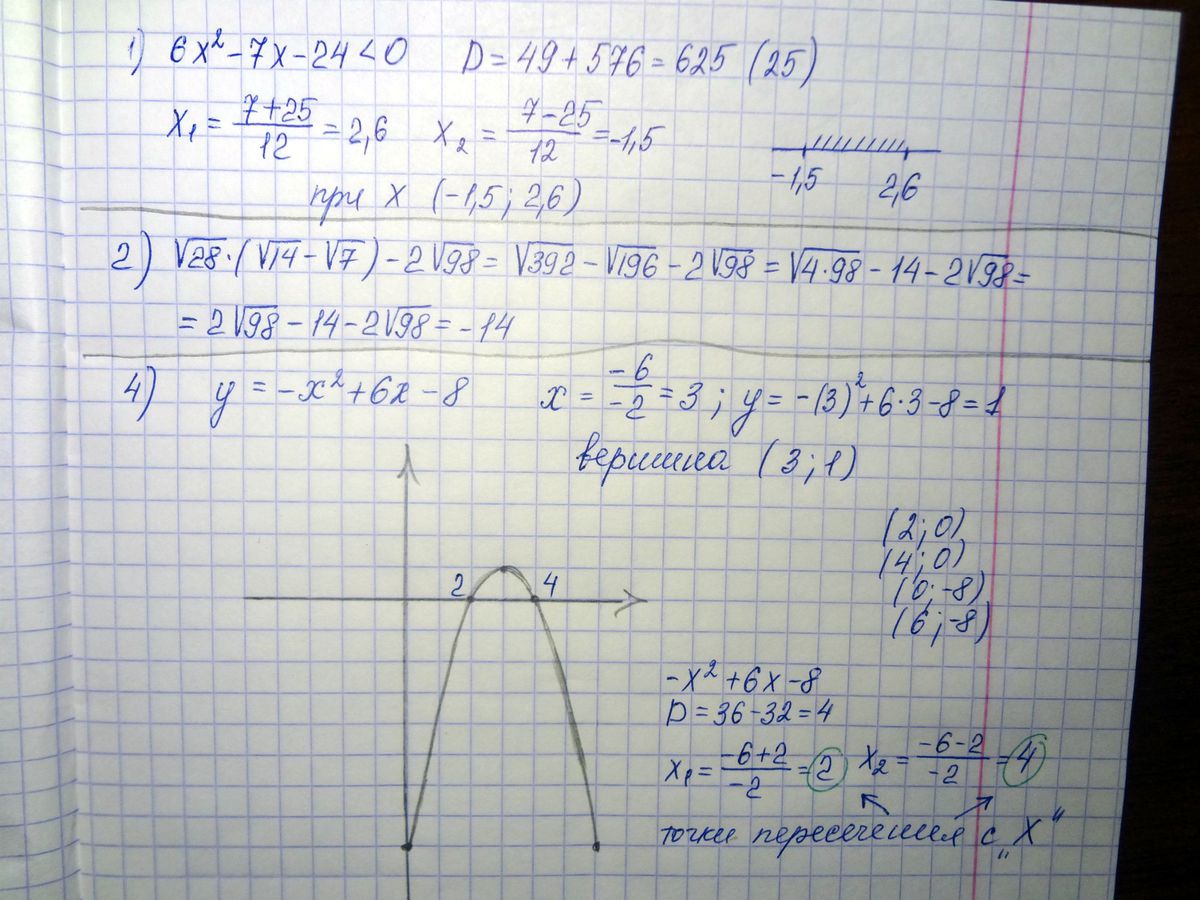 1) 6x² - 7x - 24 < 0 D = 49 + 576 = 625 (25)
x₁ = (7+25)/12 = 2,6 x₂ = (7-25)/12 = -1,5
-1,5 2,6
при x (-1,5; 2,6)
2) √28·(√14 - √7) - 2√98 = √392 - √196 - 2√98 = √4·98 - 14 - 2√98 =
= 2√98 - 14 - 2√98 = -14
4) y = -x² + 6x - 8 x = -6/-2 = 3; y = -(3)² + 6·3 - 8 = 1
вершина (3; 1)
(2; 0)
(4; 0)
(0; -8)
(6; -8)
2 4
-x² + 6x - 8
D = 36 - 32 = 4
x₁ = (-6+2)/-2 = 2 x₂ = (-6-2)/-2 = 4
точки пересечения с „X"